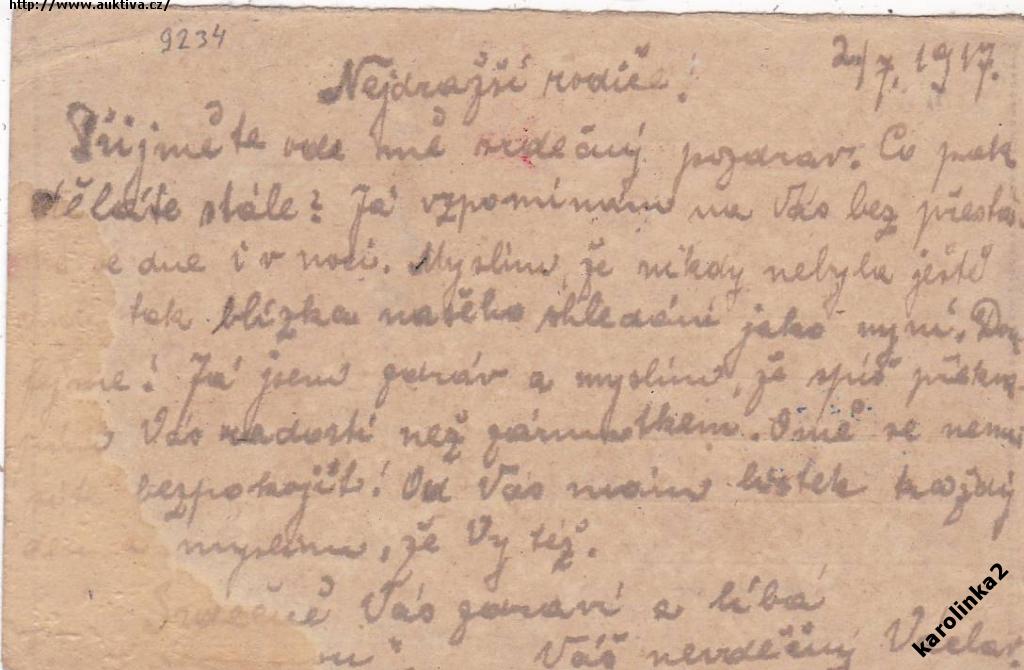 http://www.auktiva.cz/
9234
2/7. 1917.
Nejdražší rodiče!
Přijměte ode mně srdečný pozdrav. Co pak
děláte stále? Já vzpomínám na Vás bez přestá-
ve dne i v noci. Myslím, že nikdy nebyla ještě
tak blízka našeho shledání jako nyní. Dou-
fejme! Já jsem zdráv a myslím, že spíš překva-
Vás radostí než zármutkem. O mě se nemu-
bezpokojit! Od Vás mám lístek každý
a myslím, že Vy též.
Srdečně Vás zdraví a líbá
Váš nevděčný
karolinka2